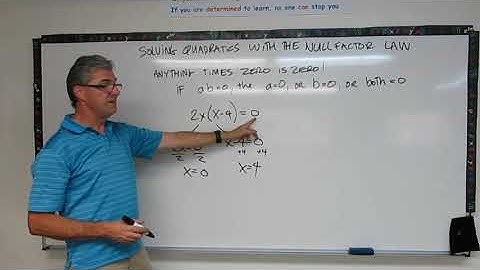 If you are determined to learn, no one can stop you
SOLVING QUADRATICS WITH THE NULL FACTOR LAW
ANYTHING TIMES ZERO IS ZERO!
IF ab=0, the a=0, or b=0, or both=0
2x(x-4)=0
x-4=0
2 2 +4 +4
x=0 x=4